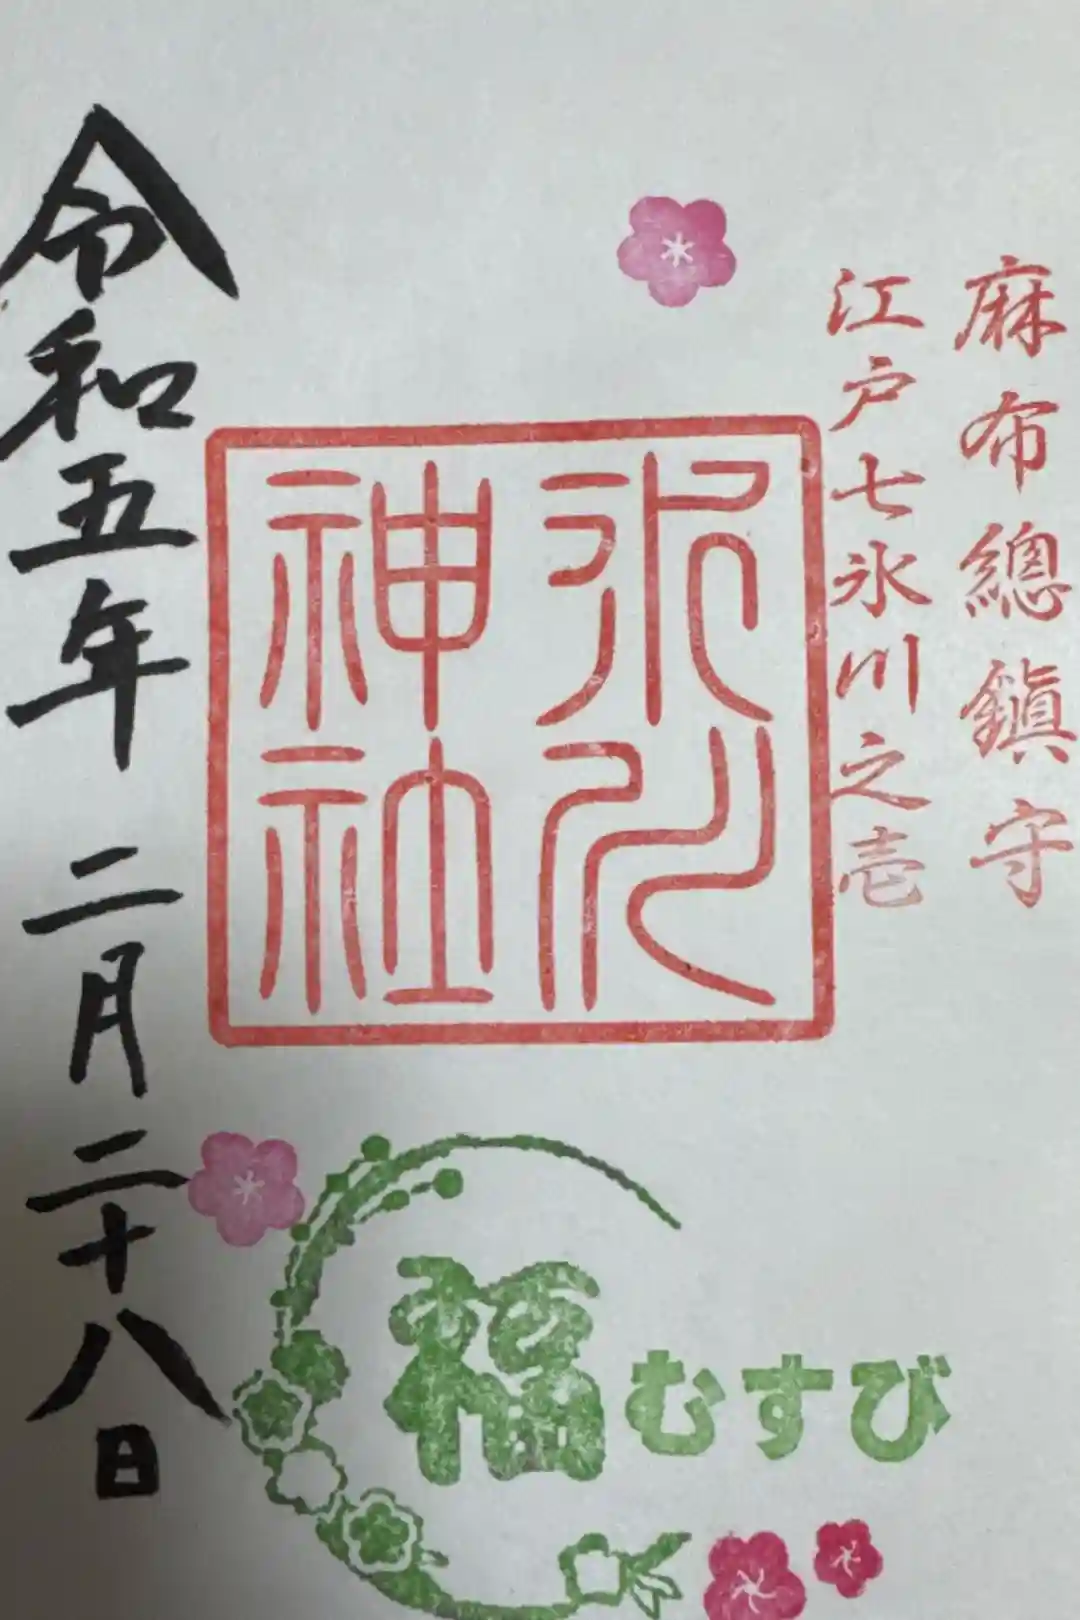 麻布總鎮守
江戸七氷川之壱
氷川神社
令和五年二月二十八日
福むすび